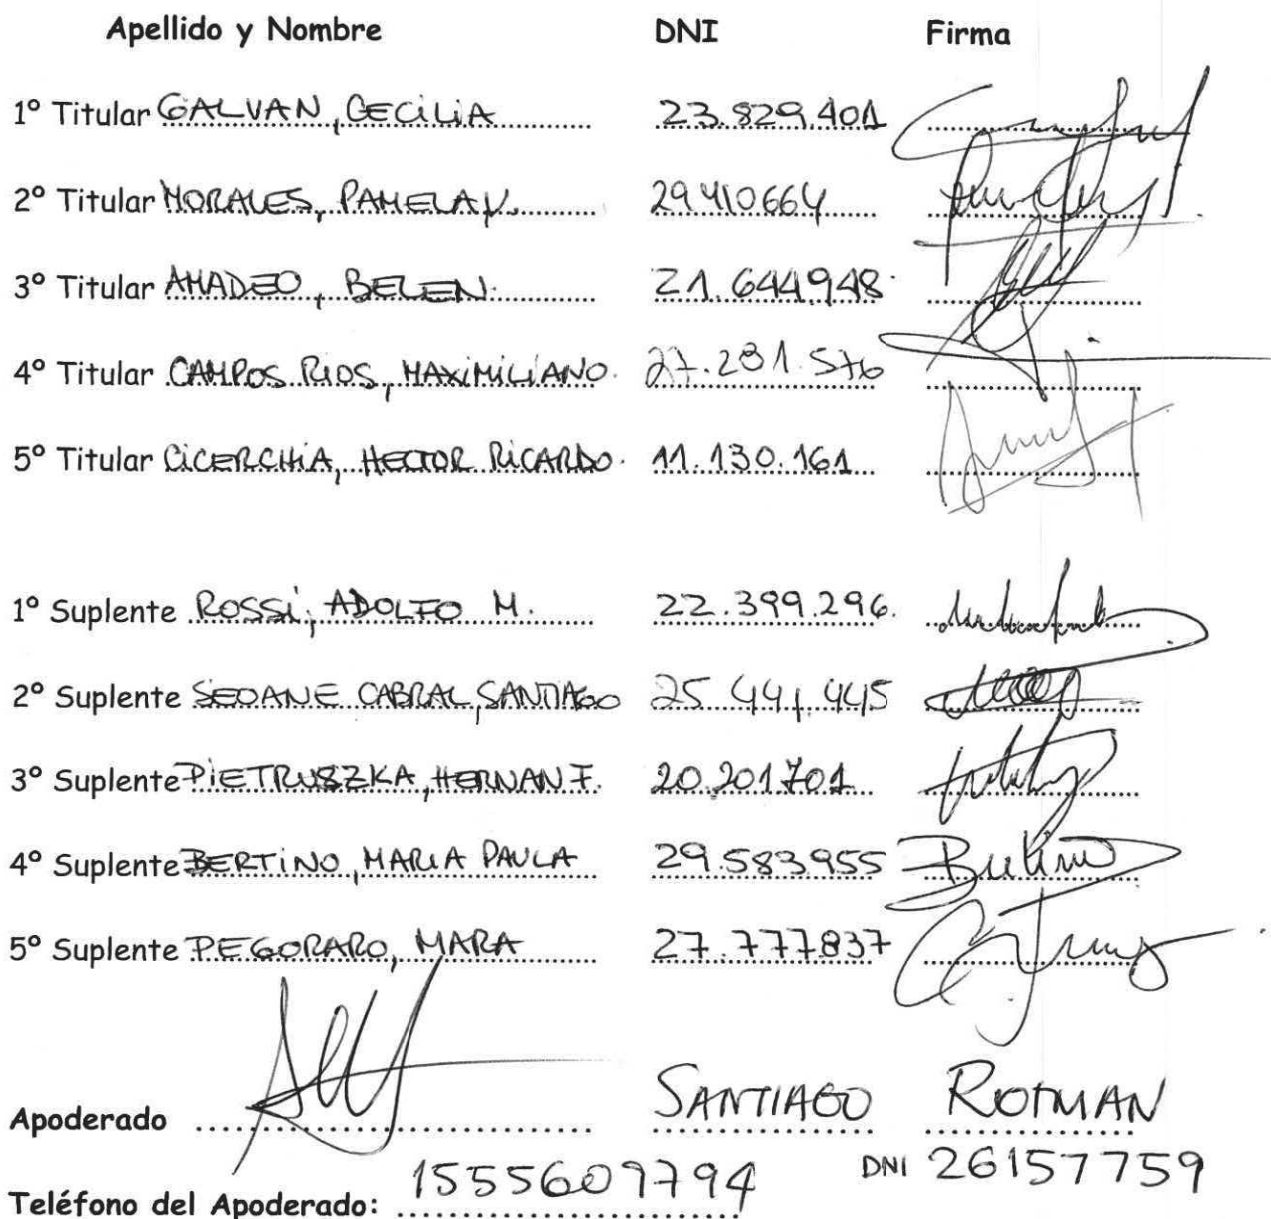 Apellido y Nombre DNI Firma
1º Titular GALVAN, CECILIA 23.829.401
2º Titular MORALES, PAMELA V. 29410664
3º Titular AMADEO, BELEN. 21.644948
4º Titular CAMPOS RIOS, MAXIMILIANO. 27.281.576
5º Titular CICERCHIA, HECTOR RICARDO. 11.130.161
1º Suplente ROSSI, ADOLFO M. 22.399.296.
2º Suplente SEOANE CABRAL, SANTIAGO 25.441.445
3º Suplente PIETRUSZKA, HERNAN F. 20.201701
4º Suplente BERTINO, MARIA PAULA 29.583955
5º Suplente PEGORARO, MARA 27.777837
Apoderado SANTIAGO ROTMAN
DNI 26157759
Teléfono del Apoderado: 1555609794